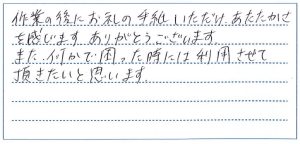 作業の後にお礼の手紙いただけ、あたたかさ
を感じます ありがとうございます
また 何かで困った時には利用させて
頂きたいと思います